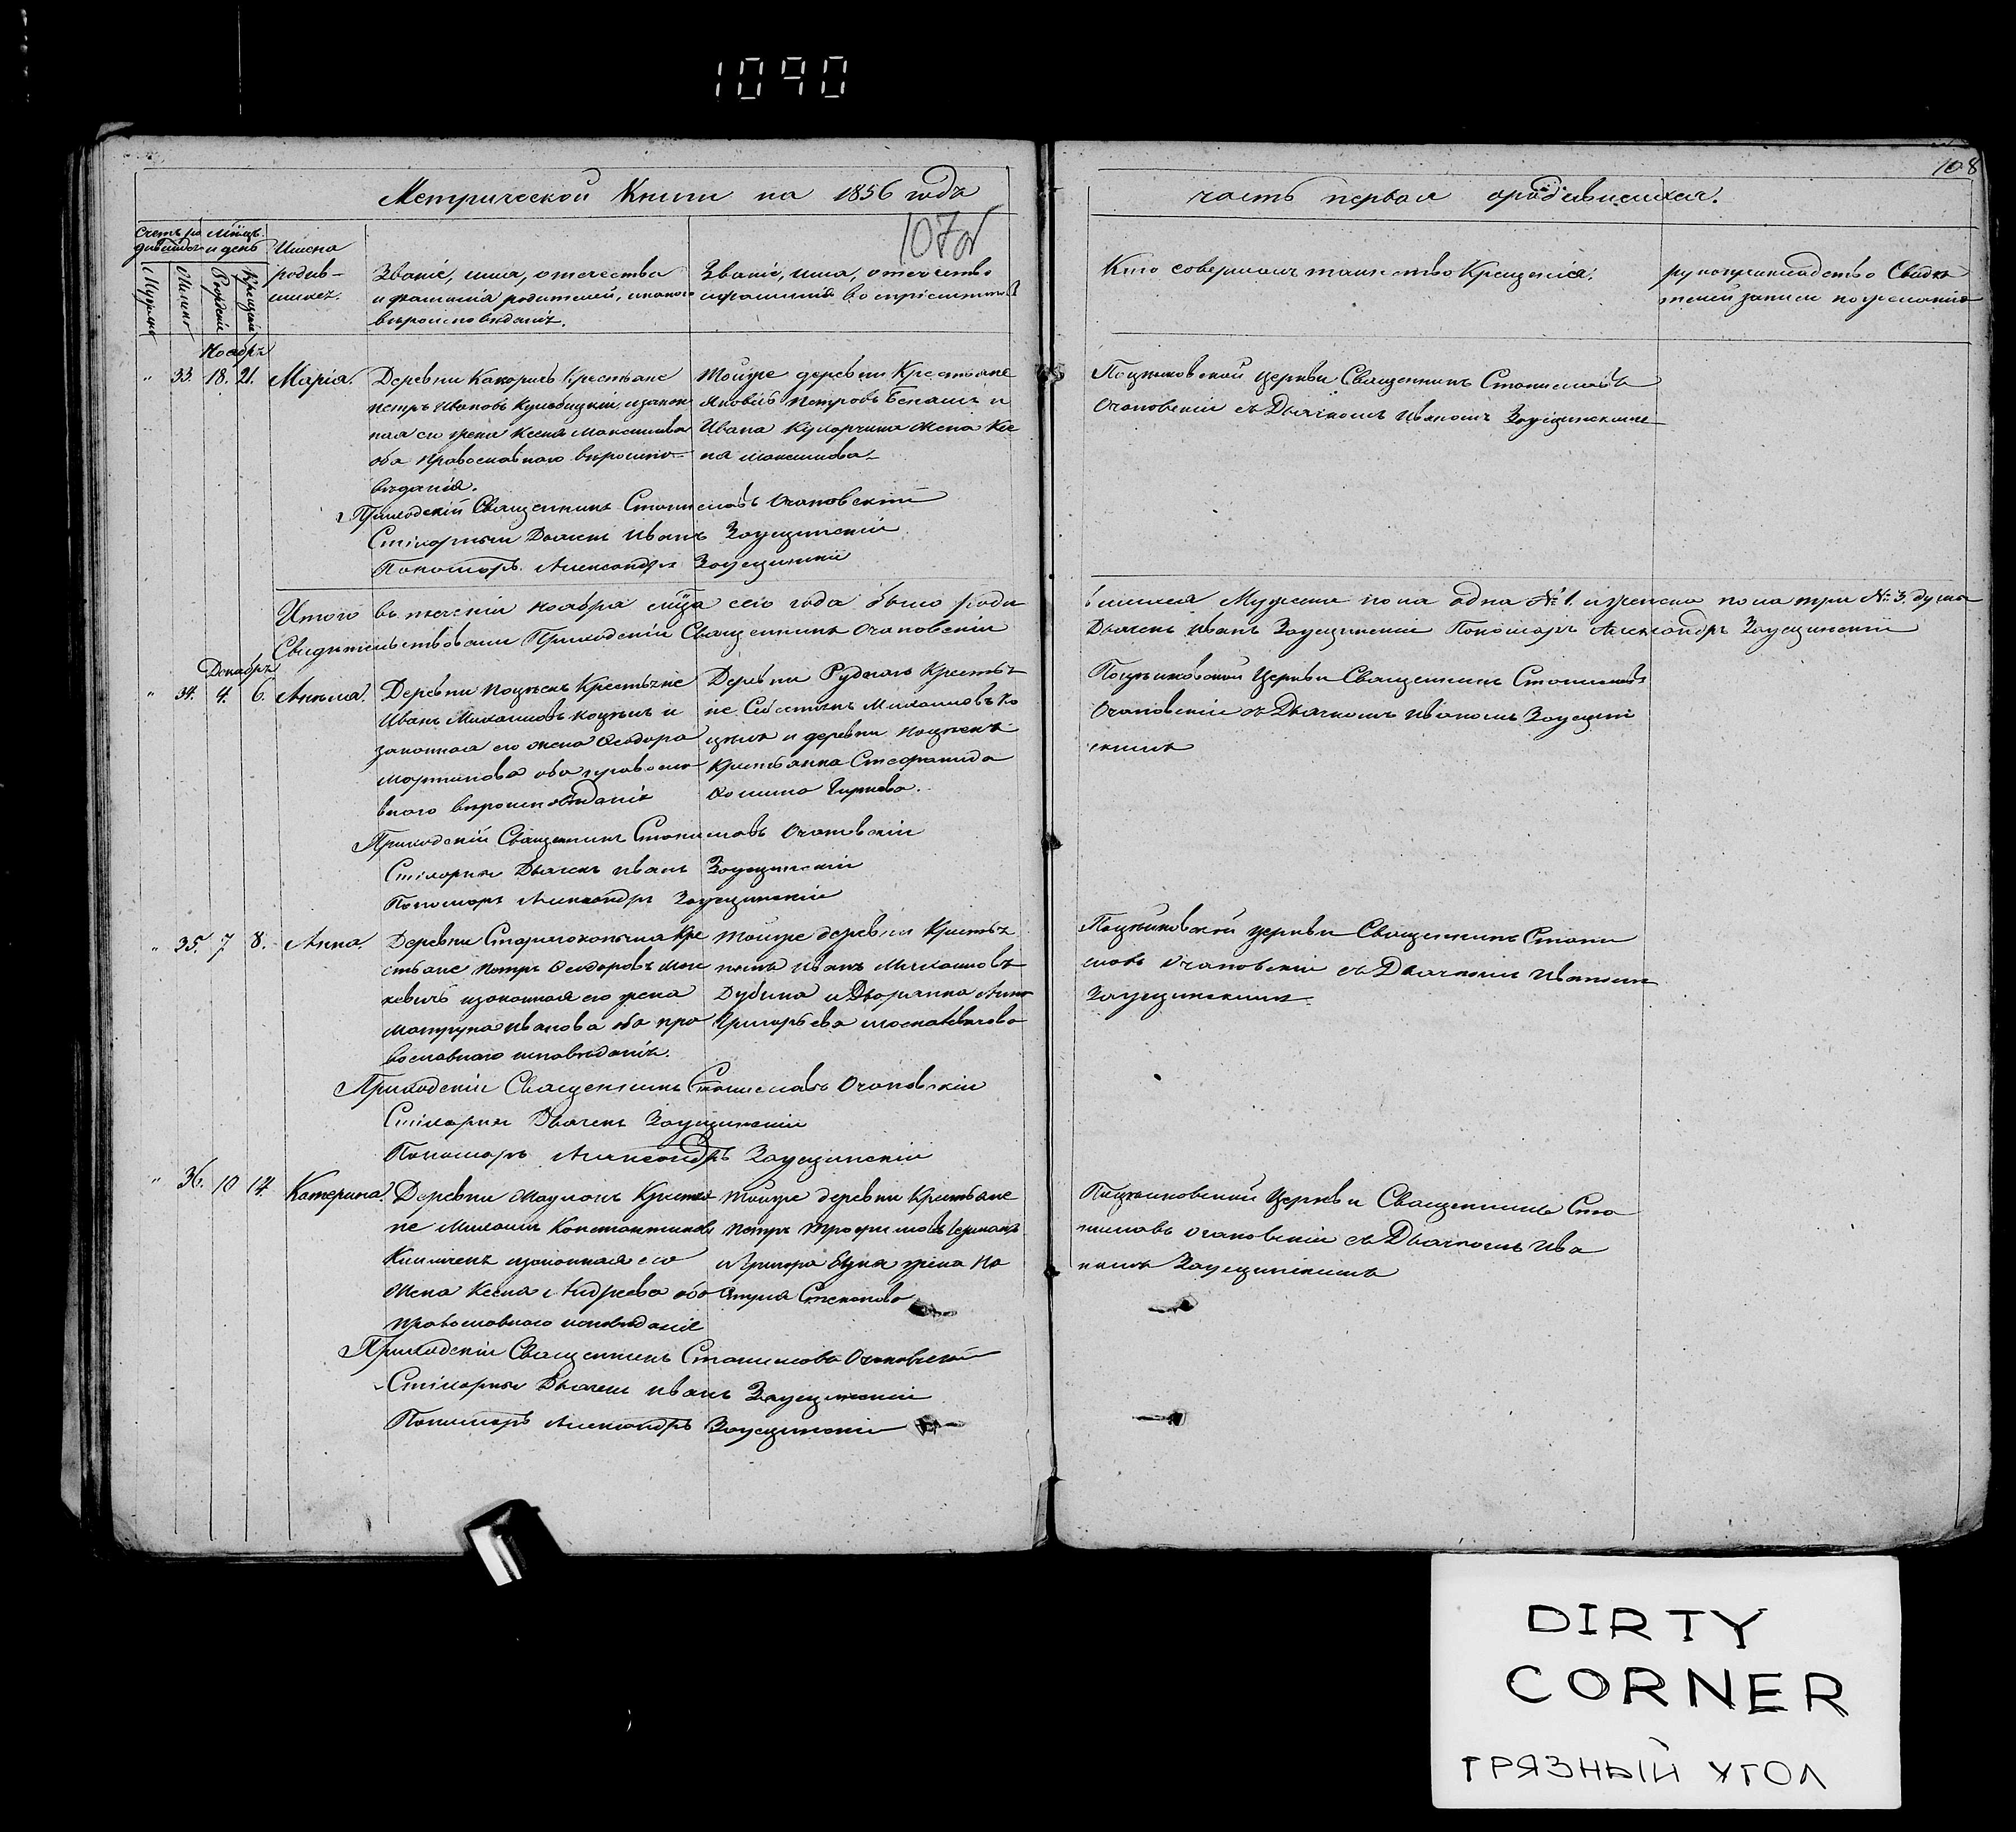 1090
108
Метрической Книги на 1856 годъ
часть первая о родившихся.
107об
Счетъ ро
дившихся
Мѣсяцъ
и день
Мужеска
Женска
Рожденіе
Крещеніе
Имена
родив-
шихся.
Званіе, имя, отечество
и фамилія родителей, и какого
вѣроисповѣданія.
Званіе, имя, отечество
и фамилія воспріемниковъ
Кто совершалъ таинство Крещенія.
рукоприкладство Свидѣ
телей записи по желанію
Ноябрь
" 33. 18. 21. Марія.
Деревни Крестьяне
Петръ Ивановъ и закон
ная его жена Ксенія Максимова
оба Православнаго вѣроиспо-
вѣданія.
Тойже деревни Крестьяне
Яковъ Петровъ и
Ивана жена Ксе
нія Максимова
Священникъ Станиславъ
Очаповскій съ Дьячкомъ Иваномъ Заущинскимъ
Приходскій Священникъ Станиславъ Очаповскій
Стихарный Дьячекъ Иванъ Заущинскій
Пономарь Александръ Заущинскій
Итого въ теченіи ноября мѣсяца сего года было роди
вшихся Мужеска пола одна № 1. и женска пола три № 3. души
Свидѣтельствовали Приходскій Священникъ Очаповскій
Дьячекъ Иванъ Заущинскій Пономарь Александръ Заущинскій
Декабрь
" 34. 4. 6. Анна.
Деревни Крестьяне
Иванъ Михаиловъ и
законная его жена Ѳеодора
Мартинова оба православ
наго вѣроисповѣданія
Деревни Крестья
не Михаиловъ
и деревни
Крестьянка Стефанида
Церкви Священникъ Станиславъ
Очаповскій съ Дьячкомъ Иваномъ Заущин
скимъ
Приходскій Священникъ Станиславъ Очаповскій
Стихарный Дьячекъ Иванъ Заущинскій
Пономарь Александръ Заущинскій
" 35. 7 8. Анна.
Деревни Кре
стьяне Петръ Ѳеодоровъ
и законная его жена
Иванова оба пра
вославнаго исповѣданія.
Тойже деревни Крестья
нинъ Иванъ Михаиловъ
Дубина и Дворянка Анна
Григорьева
Церкви Священникъ Стани
славъ Очаповскій съ Дьячкомъ Иваномъ
Заущинскимъ.
Приходскій Священникъ Станиславъ Очаповскій
Стихарный Дьячекъ Заущинскій
Пономарь Александръ Заущинскій
" 36. 10 14. Катерина.
Деревни Крестья
не Михаилъ Константиновъ
и законная его
жена Ксенія Андреева оба
православнаго исповѣданія
Тойже деревни Крестьяне
Петръ Трофимовъ
и Григора жена На
стасія Степанова
Церкви Священникъ Ста
ниславъ Очаповскій съ Дьячкомъ Ива
номъ Заущинскимъ
Приходскій Священникъ Станиславъ Очаповскій
Стихарный Дьячекъ Иванъ Заущинскій
Пономарь Александръ Заущинскій
DIRTY
CORNER
ГРЯЗНЫЙ УГОЛ